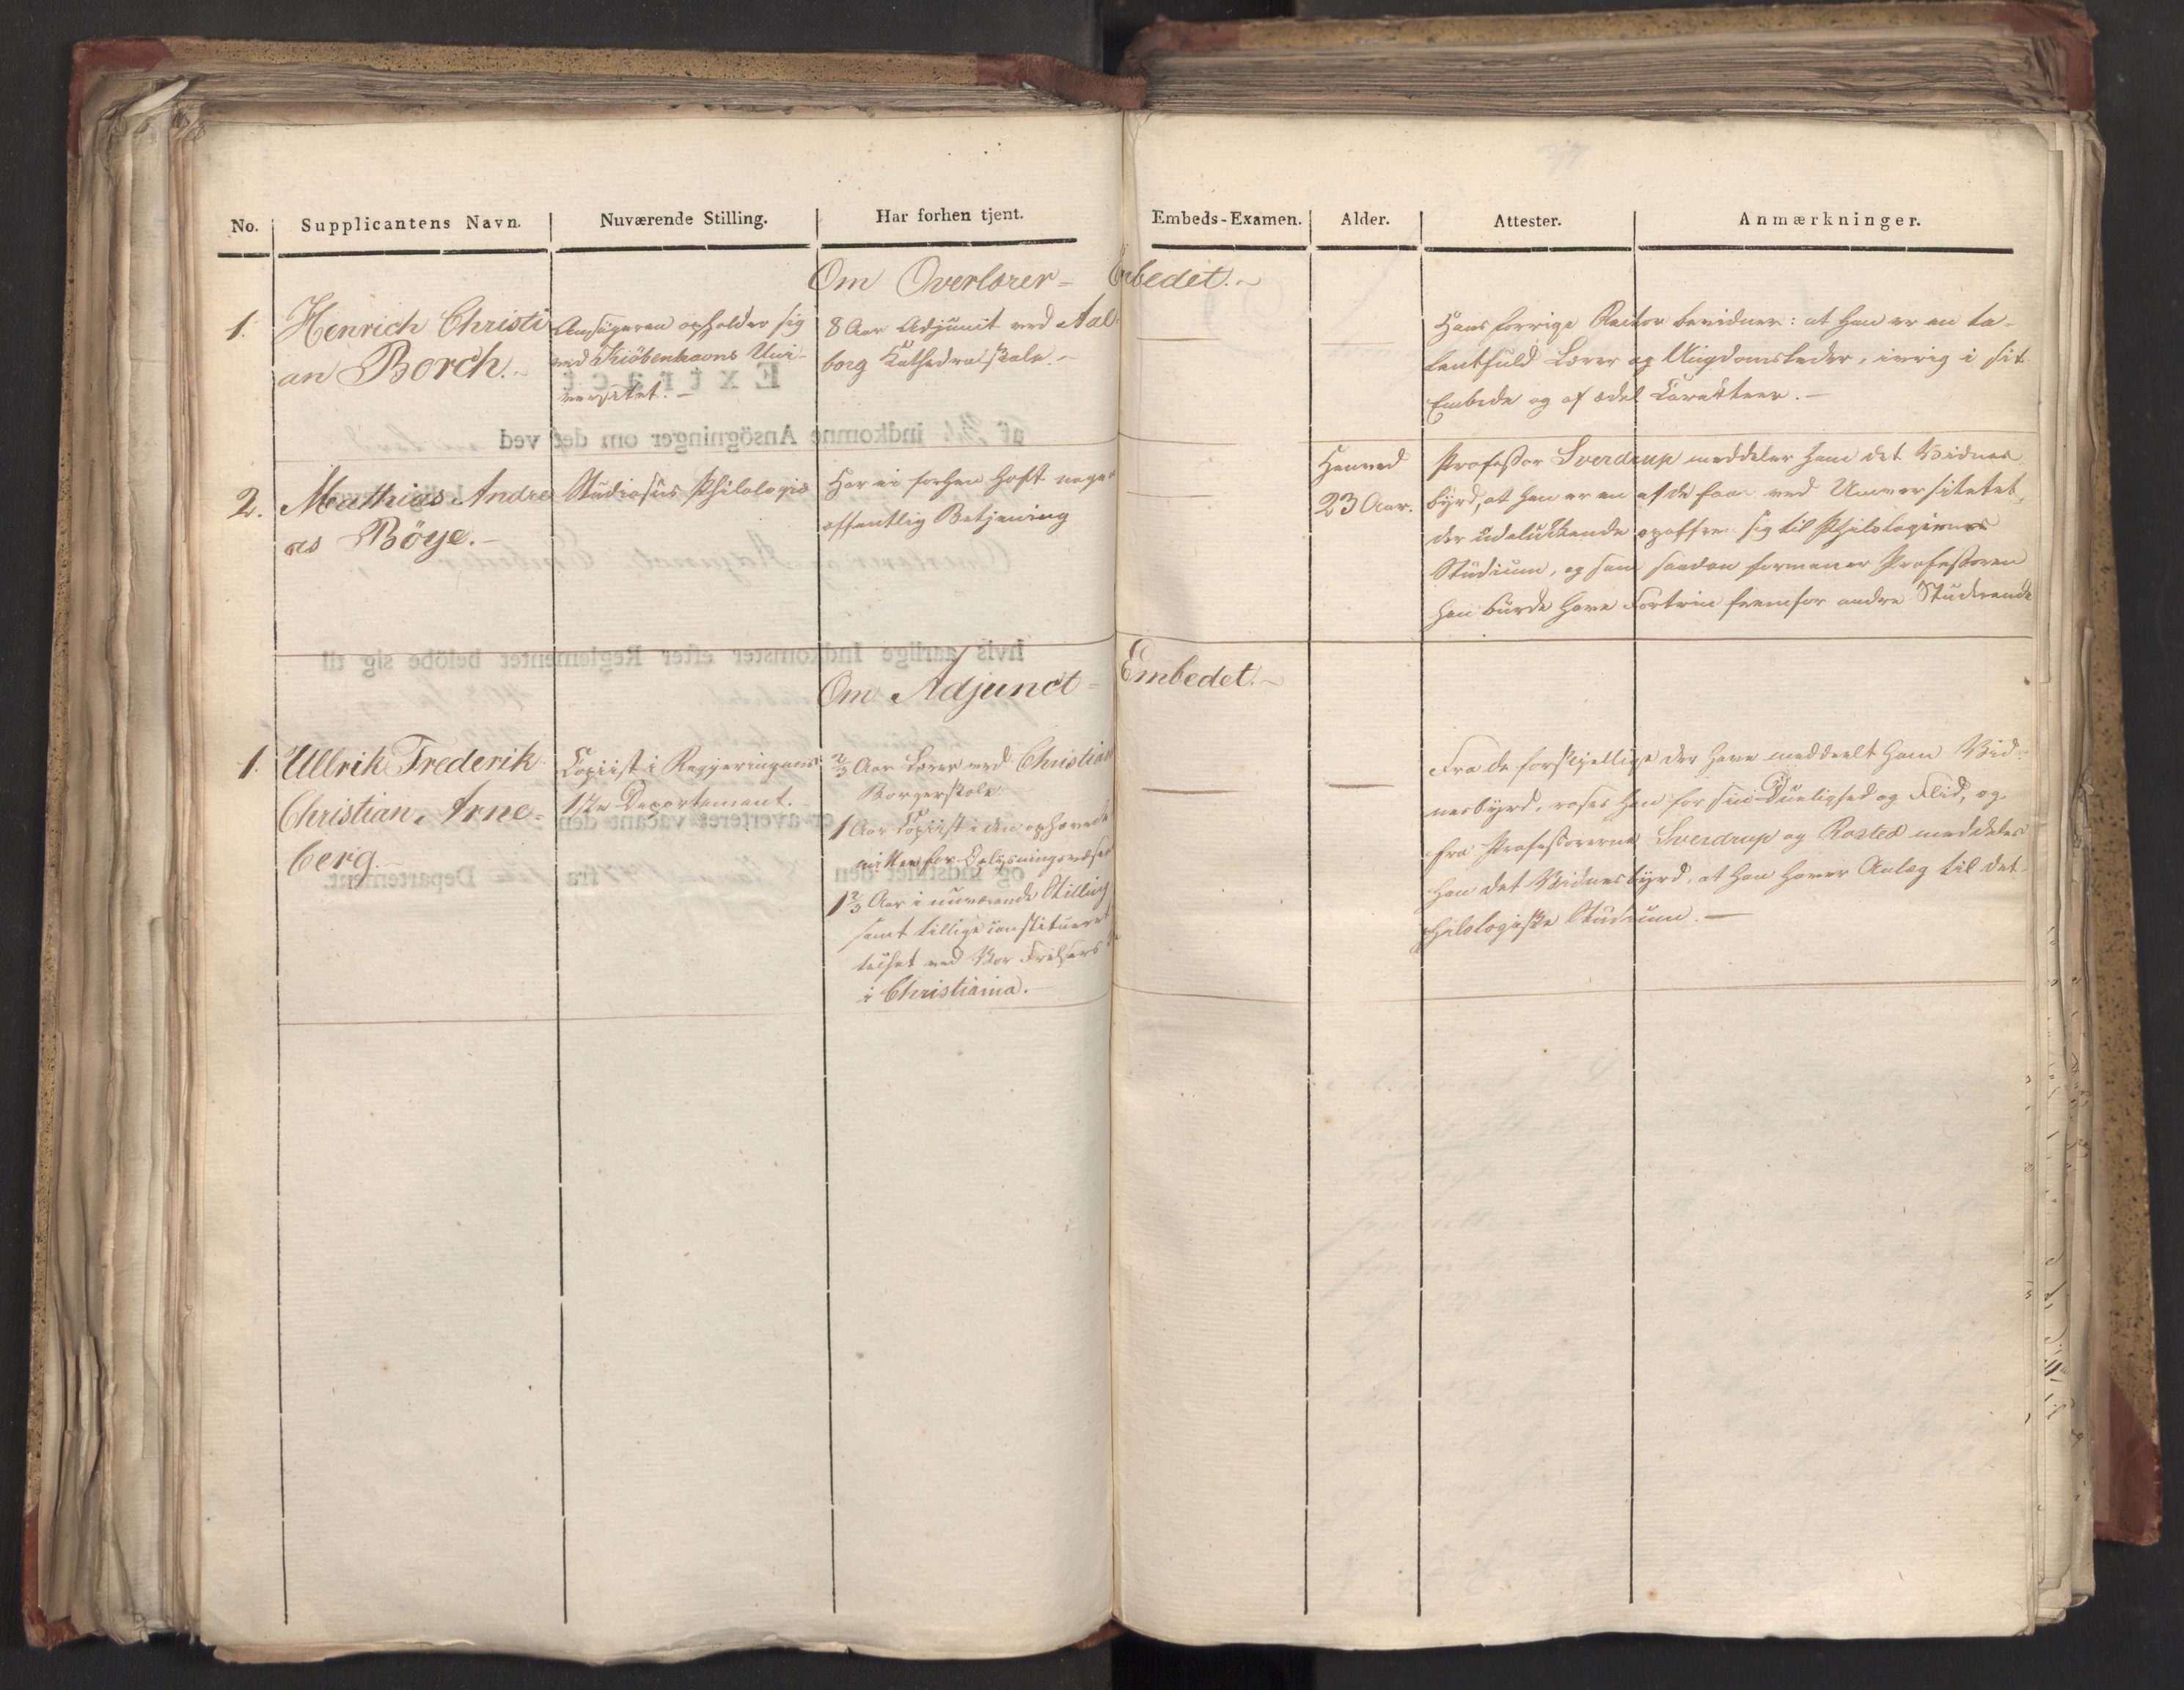 No. Supplicantens Navn. Nuværende Stilling. Har forhen tjent. Embeds-Examen. Alder. Attester. Anmærkninger.
Om Overlærer= Embedet.
1. Henrich Christi
an Borch.
Ansøgeren opholder sig
ved Kiöbenhavns Uni-
versitet.
8 Aar Adjunct ved Aal-
borg Kathedralskole.
Hans forrige Rector bevidner: at han er en ta-
lentfuld Lærer og Ungdomsleder, ivrig i sit
Embede og af ædel Caracteer.
2. Mathias Andre
as Böye.
Studiosus Philologiæ
Har ei forhen haft nogen
offentlig Betjening
Henved
23 Aar.
Professor Sverdrup meddeler ham det Vidnes-
byrd, at han er en af de faae ved Universitetet,
der udelukkende opoffrer sig til Philologiens
Studium, og som saadan formener Professoren
han burde have Fortrin fremfor andre Studerende
Om Adjunct= Embedet.
1. Ullrik Frederik
Christian Arne-
berg.
Copiist i Regjeringens
1ste Departement.
2/3 Aar Lærer ved Christian
Borgerskole
1 Aar Copiist i den ophævede
for Oplysningsvæsen
1 2/3 Aar i nuværende Stilling
samt tillige constitueret
ved Vor Frelsers
i Christiania.
Fra de forskjellige der have meddeelt ham Vid-
nesbyrd, roses han for sin Duelighed og Flid, og
fra Professorerne Sverdrup og Rosted meddeles
ham det Vidnesbyrd, at han haver Anlæg til det
philologiske Studium.